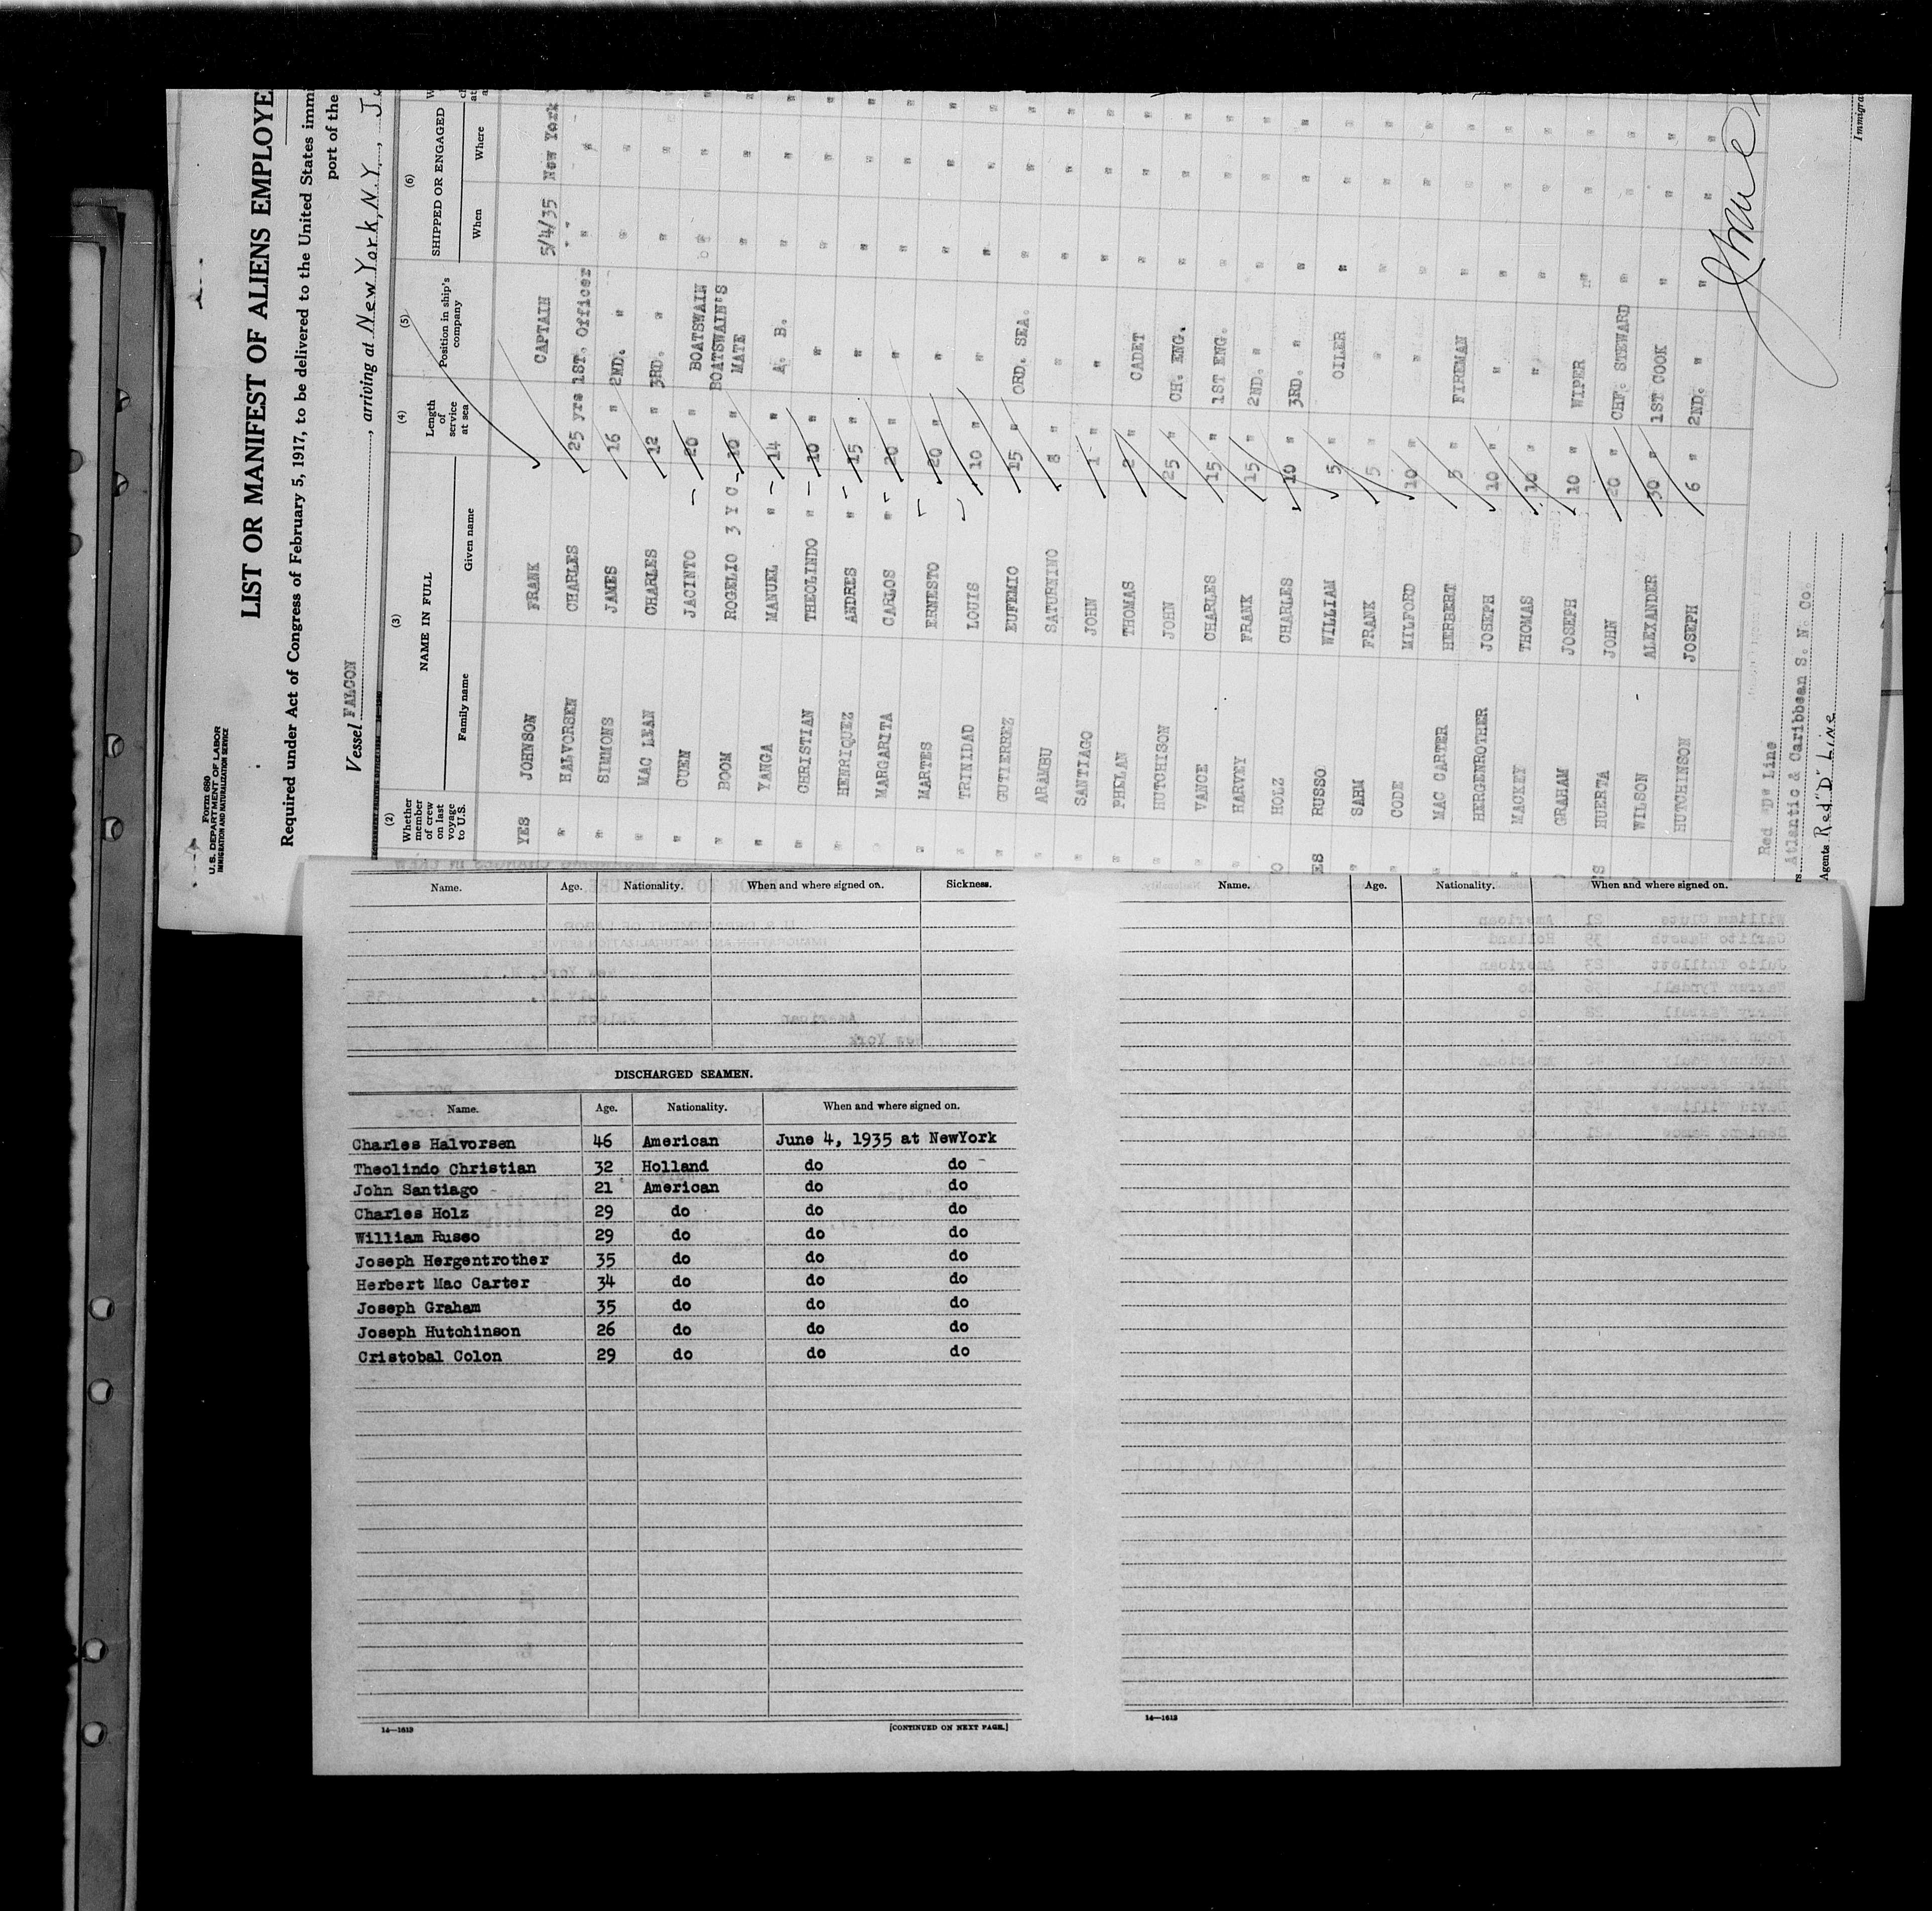 Form 680
U.S. DEPARTMENT OF LABOR
IMMIGRATION AND NATURALIZATION SERVICE
LIST OR MANIFEST OF ALIENS EMPLOYE
Required under Act of Congress of February 5, 1917, to be delivered to the United States immi
port of the
Vessel FALCON, arriving at New York, N.Y.
(2) (3) (4) (5) (6)
Whether member of crew on last voyage to U.S. NAME IN FULL Length of service at sea Position in ship's company SHIPPED OR ENGAGED
Family name Given name When Where
YES JOHNSON FRANK CAPTAIN 5/4/35 New York
" HALVORSEN CHARLES 25 yrs 1ST. Officer " "
" SIMMONS JAMES 16 " 2ND. " " "
" MAC LEAN CHARLES 12 " 3RD. " " "
" CUEN JACINTO 20 " BOATSWAIN " "
" BOOM ROGELIO 3 Y C 10 " BOATSWAIN'S MATE " "
" YANGA MANUEL " 14 " A. B. " "
" CHRISTIAN THEOLINDO " 10 " " " "
" HENRIQUEZ ANDRES " 15 " " " "
" MARGARITA CARLOS " 20 " " " "
" MARTES ERNESTO 20 " " " "
" TRINIDAD LOUIS 10 " " " "
" GUTIERREZ EUFEMIO 15 " ORD. SEA. " "
" ARAMBU SATURNINO 8 " " " "
" SANTIAGO JOHN 1 " " " "
" PHELAN THOMAS 2 " CADET " "
" HUTCHISON JOHN 25 " CH. ENG. " "
" VANCE CHARLES 15 " 1ST ENG. " "
" HARVEY FRANK 15 " 2ND. " " "
HOLZ CHARLES 10 " 3RD. " " "
ES RUSSO WILLIAM 5 " OILER " "
" SAHM FRANK 5 " " " "
CODE MILFORD 10 " " " "
MAC CARTER HERBERT 5 " FIREMAN " "
HERGENROTHER JOSEPH 10 " " " "
MACKEY THOMAS 10 " " " "
GRAHAM JOSEPH 10 " WIPER " "
HUERTA JOHN 20 " CHF. STEWARD " "
WILSON ALEXANDER 30 " 1ST COOK " "
HUTCHINSON JOSEPH 6 " 2ND. " " "
Red "D" Line
Atlantic & Caribbean S. N. Co.
Agents Red "D" Line
Immigra
Name. Age. Nationality. When and where signed on. Sickness.
DISCHARGED SEAMEN.
Name. Age. Nationality. When and where signed on.
Charles Halvorsen 46 American June 4, 1935 at NewYork
Theolindo Christian 32 Holland do do
John Santiago 21 American do do
Charles Holz 29 do do do
William Russo 29 do do do
Joseph Hergentrother 35 do do do
Herbert Mac Carter 34 do do do
Joseph Graham 35 do do do
Joseph Hutchinson 26 do do do
Cristobal Colon 29 do do do
14—1613 [CONTINUED ON NEXT PAGE.]
Name. Age. Nationality. When and where signed on.
14—1613